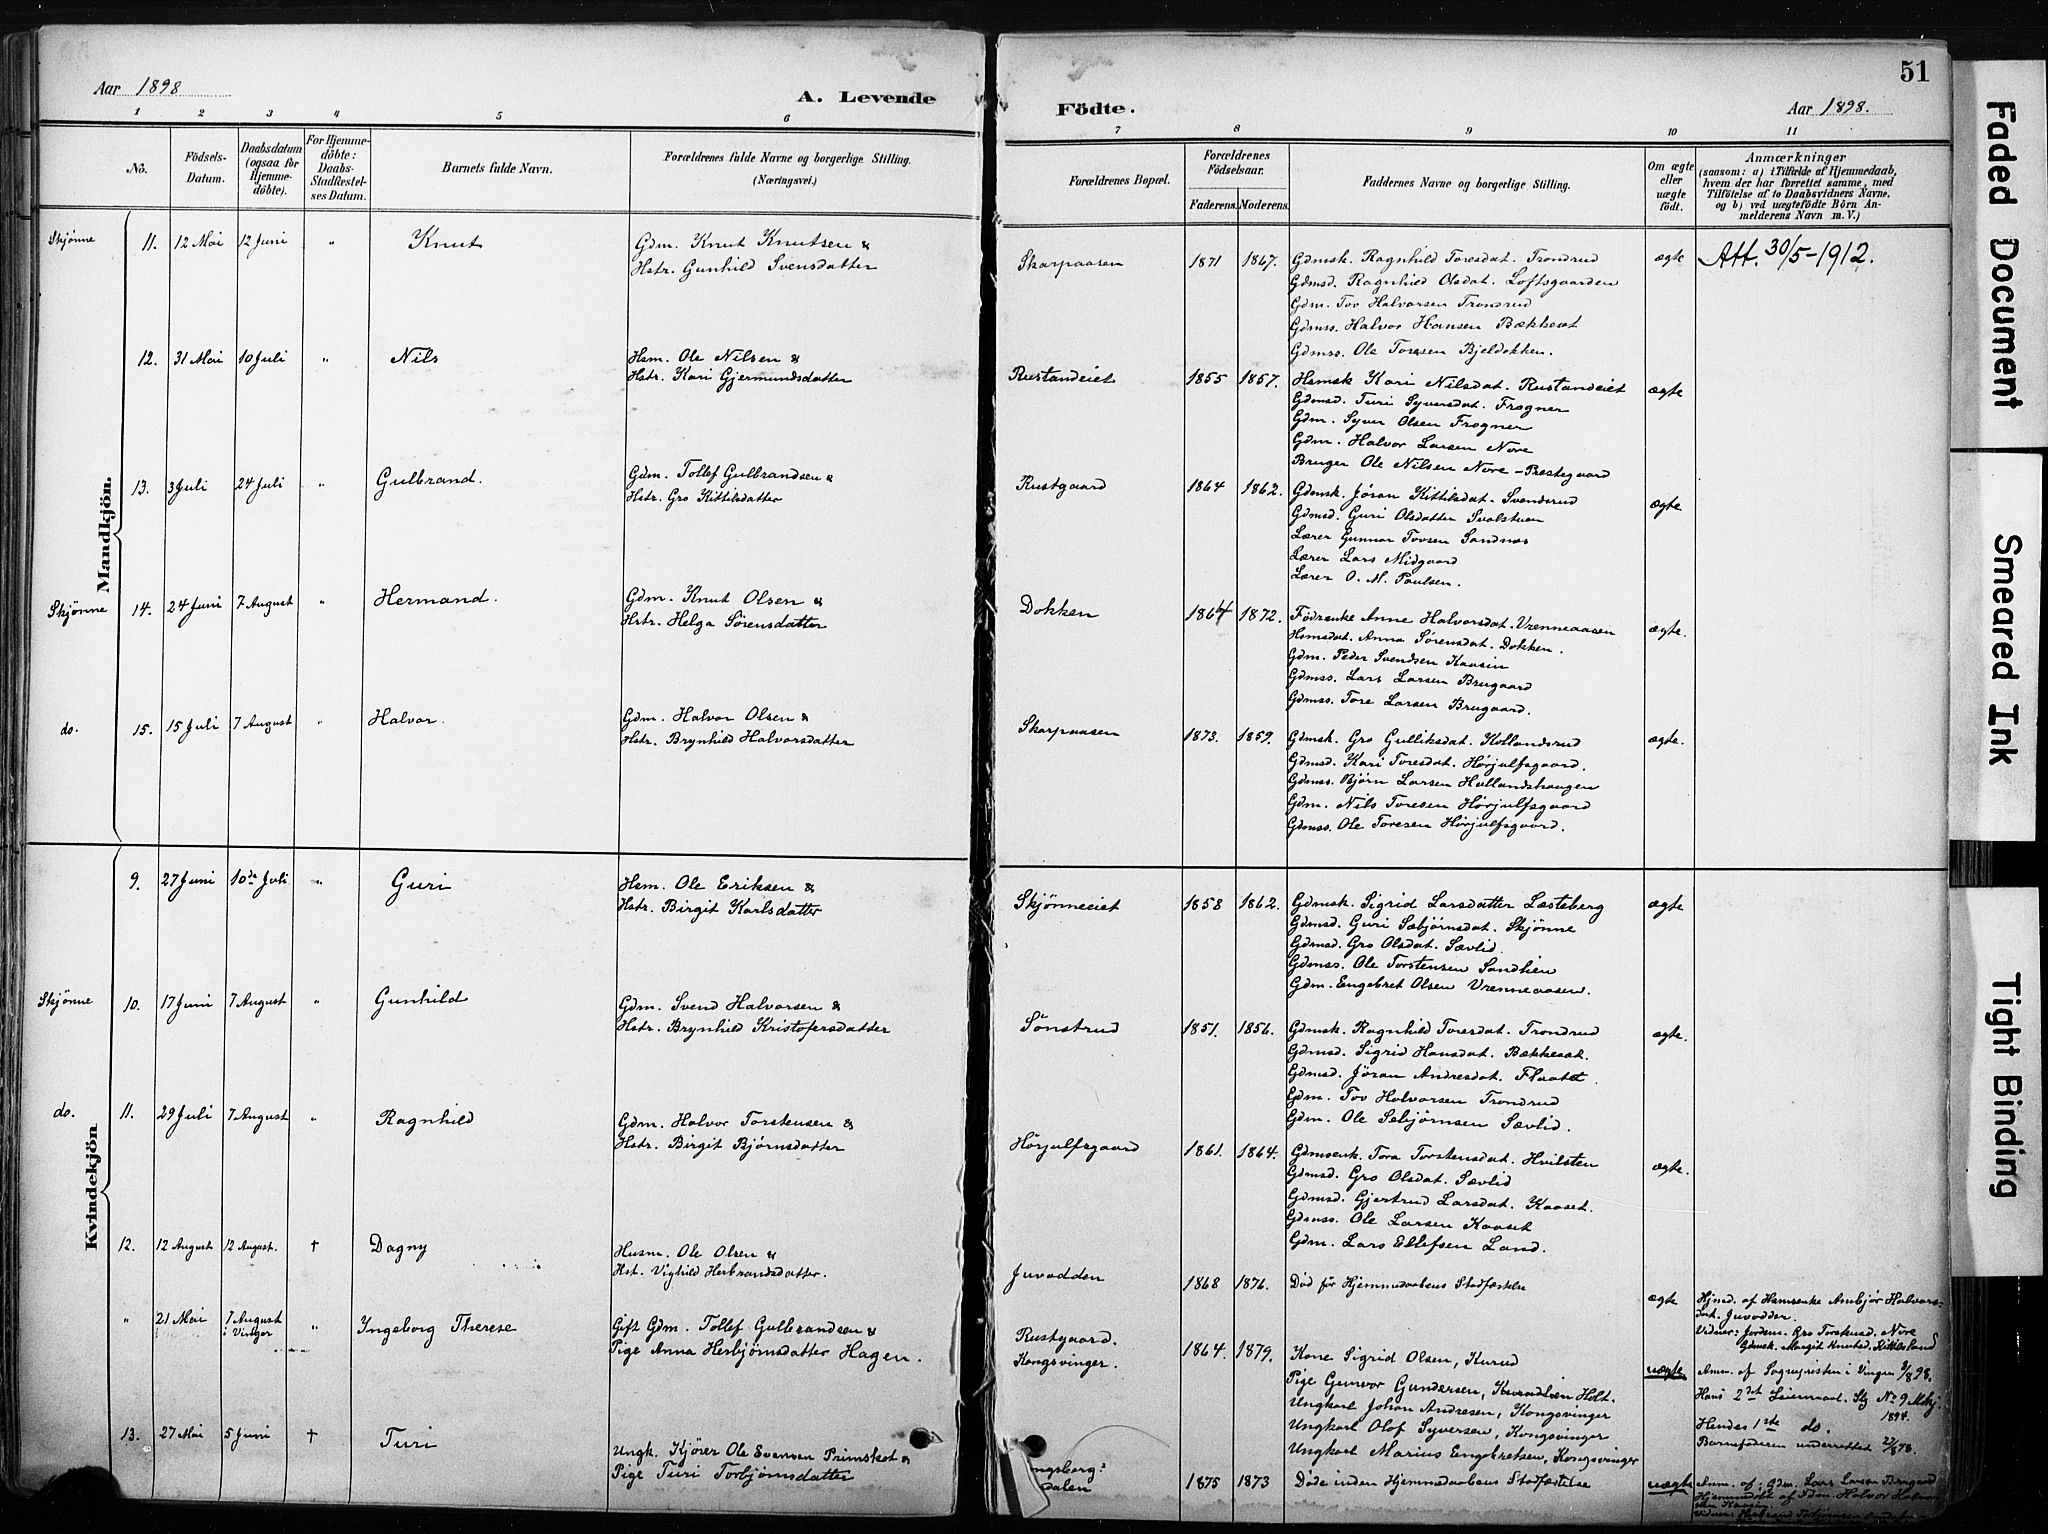 Aar 1898
A. Levende
1 2 3 4 5 6
No.
Födsels-
Datum.
Daabsdatum
(ogsaa for
Hjemme-
döbte).
For Hjemme-
döbte:
Daabs-
Stadfæstel-
ses Datum.
Barnets fulde Navn.
Forældrenes fulde Navne og borgerlige Stilling.
(Næringsvei.)
Mandkjön.
Skjønne 11. 12 Mai 12 Juni " Knut Gdm. Knut Knutsen &
Hstr. Gunhild Svensdatter
12. 31 Mai 10 Juli " Nils Hsm. Ole Nilsen &
Hstr. Kari Gjermundsdatter
13. 3 Juli 24 Juli " Gulbrand. Gdm. Tollef Gulbrandsen &
Hstr. Gro Kittilsdatter
Skjønne 14. 24 Juni 7 August " Hermand. Gdm. Knut Olsen &
Hstr. Helga Sörensdatter
do. 15. 15 Juli 7 August " Halvor. Gdm. Halvor Olsen &
Hstr. Brynhild Halvorsdatter
Kvindekjön
9. 27 Juni 10de Juli " Guri Hsm. Ole Eriksen &
Hstr. Birgit Karlsdatter
Skjønne 10. 17 Juni 7 August " Gunhild Gdm. Svend Halvorsen &
Hstr. Brynhild Kristofersdatter
do. 11. 29 Juli 7 August " Ragnhild Gdm. Halvor Torstensen &
Hstr. Birgit Bjørnsdatter
12. 12 August 12 August. † Dagny Husm. Ole Olsen &
Hst. Vighild Herbrandsdatter.
" 21 Mai 7 August
i Vinger " Ingeborg Therese Gift Gdm. Tollef Gulbrandsen &
Pige Anna Herbjörnsdatter Hagen.
13. 27 Mai 5 Juni † Turi Ungk. Kjører Ole Evensen Primskot &
Pige Turi Torbjørnsdatter
51
Födte.
Aar 1898.
7 8 9 10 11
Forældrenes Bopæl.
Forældrenes
Födselsaar.
Faderens. Moderens.
Faddernes Navne og borgerlige Stilling.
Om ægte
eller
uægte
födt.
Anmærkninger
(saasom: a) i Tilfælde af Hjemmedaab,
hvem der har forrettet samme, med
Tilföielse af to Daabsvidners Navne.
og b) ved uægtefödte Börn An-
melderens Navn m. V.)
Skarpaasen 1871 1867. Gdmsk. Ragnhild Toresdat. Trondrud ægte Att. 30/5-1912.
Gdmsd. Ragnhild Olsdat. Loftsgaarden
Gdm. Tov Halvorsen Trondrud
Gdmss. Halvor Hansen Bækkeset
Gdmss. Ole Toresen Bjeldokken.
Rustandeiet 1855 1857. Hsmsk Kari Nilsdat. Rustandeiet ægte
Gdmsd. Turi Syversdat. Frogner
Gdm. Syver Olsen Frogner
Gdm. Halvor Larsen Nore
Bruger Ole Nilsen Nore-Prestegaard
Rustgaard 1864 1862. Gdmsk. Jöran Kittilsdat. Svendsrud ægte
Gdmsd. Guri Olsdatter Svalstuen
Lærer Gunnar Tovsen Sandnæs
Lærer Lars Midgaard
Lærer O. M. Paulsen.
Dokken 1864 1872. Födrenke Anne Halvorsdat. Vrenneaasen ægte.
Hsmsdat. Anna Sörensdat. Dokken.
Gdm. Peder Svendsen Kaasin
Gdmss. Lars Larsen Brugaard
Gdmss. Tore Larsen Brugaard.
Skarpaasen 1873. 1859. Gdmsk. Gro Gulliksdat. Kollandsrud ægte.
Gdmsd. Kari Toresdat. Hörjulfsgaard.
Gdmss. Björn Larsen Hallandshaugen
Gdm. Nils Toresen Hörjulfsgaard
Gdmss. Ole Toresen Hörjulfsgaard.
Skjönneeiet 1858 1862. Gdmsk. Sigrid Larsdatter Læsteberg ægte
Gdmsd. Guri Sæbjörnsdat. Skjönne
Gdmsd. Gro Olsdat. Sævlid.
Gdmss. Ole Torstensen Sandlien
Gdm. Engebret Olsen Vrenneaasen.
Sönstrud 1851. 1856. Gdmsk. Ragnhild Toresdat. Trondrud ægte.
Gdmsd. Sigrid Hansdat. Bækkeset.
Gdmsd. Jöran Andresdat. Flaatet.
Gdm. Tov Halvorsen Trondrud
Gdm. Ole Sebjörnsen Sævlid.
Hörjulfsgaard 1861. 1864. Gdmsenk. Tora Torstensdat. Hvilsten ægte.
Gdmsd. Gro Olsdat. Sævlid
Gdmsd. Gjertrud Larsdat. Kaaset.
Gdmss. Ole Larsen Kaaset
Gdm. Lars Ellefsen Land.
Juvodden 1868 1876. Död för Hjemmedaabens Stadfæstelse ægte Hjmd. af Hsmsenke Ambjör Halvors-
dat. Juvodden.
Vidner: Jordem. Gro Torstensd. Nore
Gdmsk. Margit Knutsd. Kittilsland
Rustgaard.
Kongsvinger. 1864. 1879. Kone Sigrid Olsen, Kurud uægte Anm. af Sognepresten i Vinger 9/8 98.
Pige Gunvor Gundersen, Kurudlien Holt. Hans 2det Leiermaal. Slg No 9 Mskj. 1894.
Ungkarl Johan Andresen, Kongsvinger Hendes 1ste do.
Ungkarl Olof Syversen, Kongsvinger Barnefaderen underrettet 22/8 98.
Ungkarl Marius Engebretsen, Kongsvinger
ngsberg:
dalen 1875 1873 Döde inden Hjemmedaabens Stadfæstelse uægte Anm. af: Gdm. Lars Larsen Brugaard
Hjemmedöbt af Gdm. Halvor Halvor-
sen Kaasin.
Faded Document
Smeared Ink
Tight Binding